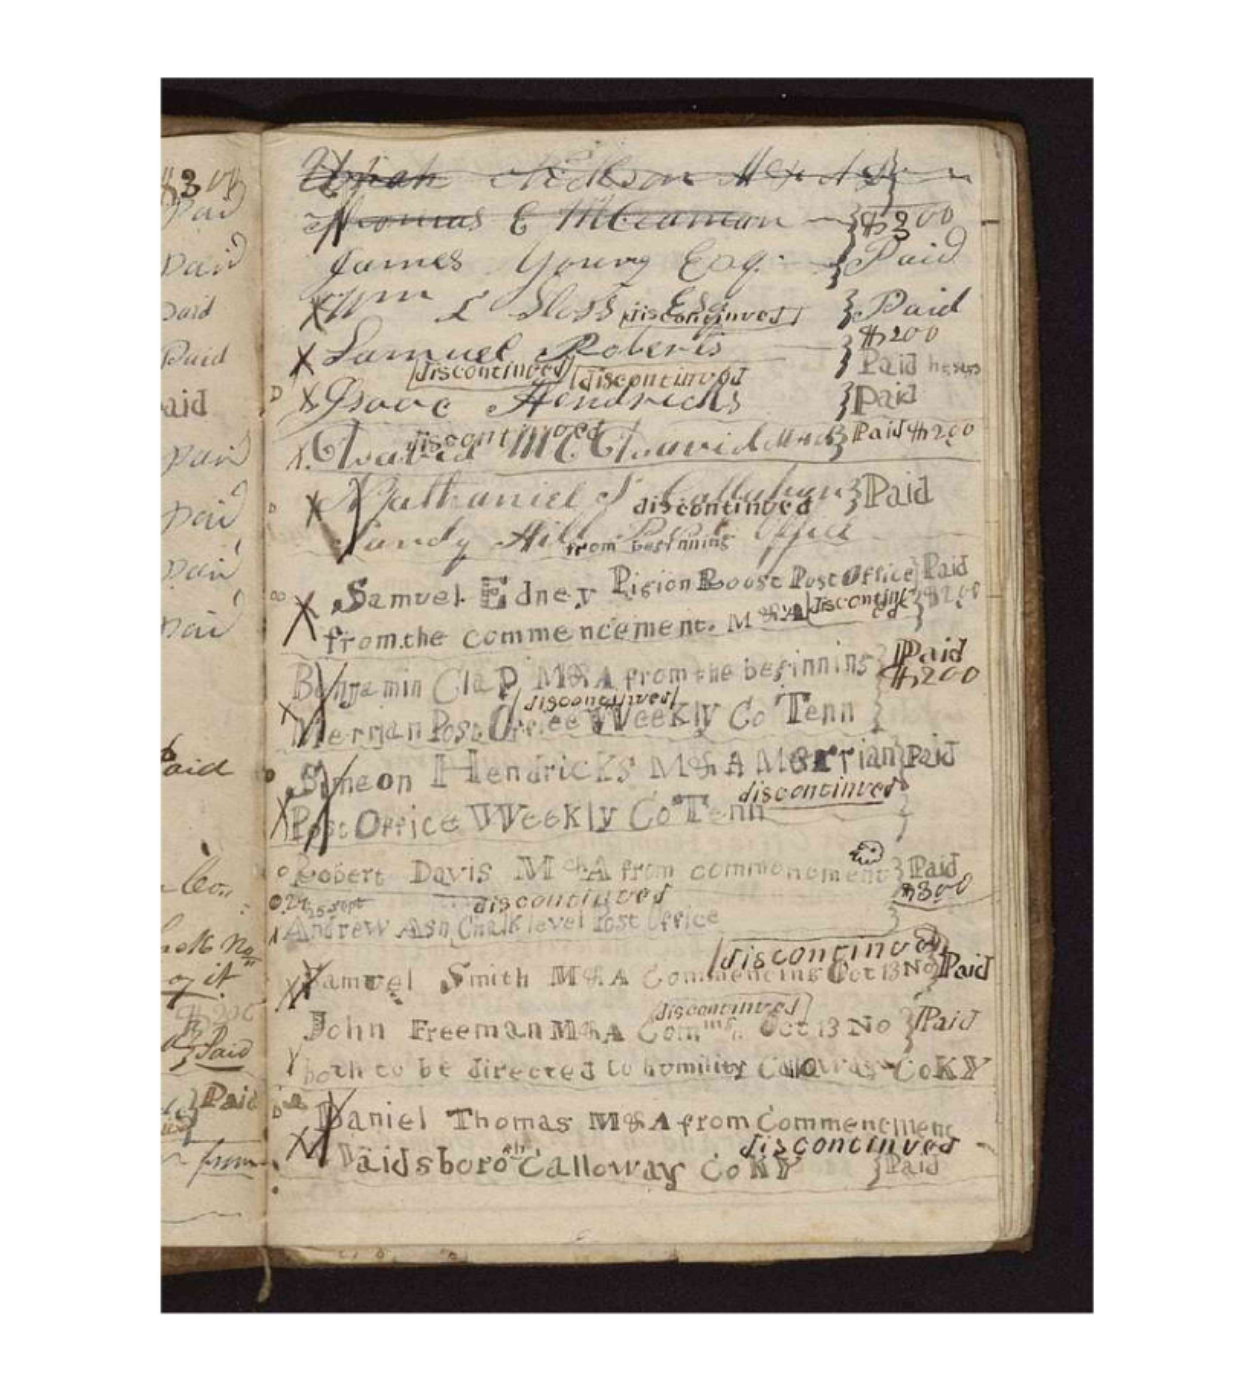 $3 00
Paid
Paid
Paid
Paid
aid
Paid
Paid
Paid
Paid
Paid
of it
$200
Paid
Paid
from
Jackson
Thomas E $300
James Young Esq. Paid
Wm L Sloss Esq discontinued Paid
$200
Samuel Roberts Paid
discontinued discontinued
Isaac Hendricks Paid
discontinued
David McDavid Paid $200
Nathaniel J Callahan Paid
discontinued
Sandy Hill Post Office
from beginning
Samuel Edney Pigion Roost Post Office Paid
from the commencement. M & A discontinued $200
Benjamin Clap M & A from the beginning Paid
$200
discontinued
Merrian Post Office Weekly Co Tenn
Simeon Hendricks M & A Merrian Paid
discontinued
Post Office Weekly Co Tenn
Robert Davis M & A from commencment Paid
$300
25 Sept discontinued
Andrew Ash Chalk level Post Office
discontinued
Samuel Smith M & A Commencing Oct 13 No Paid
discontinued
John Freeman M & A Oct 13 No Paid
both to be directed to humility Calloway Co KY
Daniel Thomas M & A from Commencment
discontinued
Waidsboro Calloway Co KY Paid